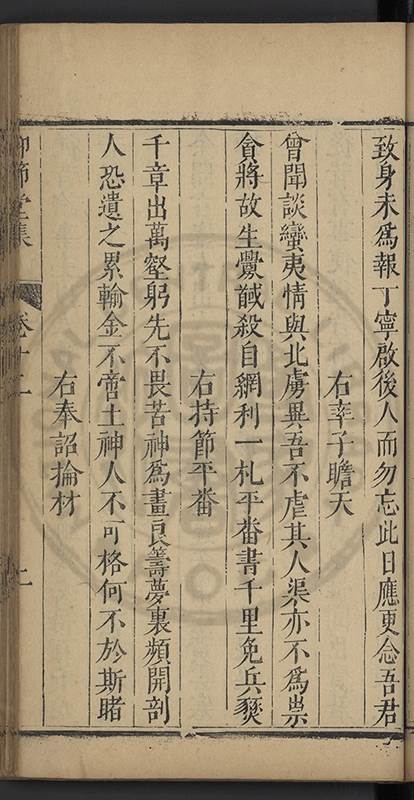 致身未爲報丁寧啟後人而勿忘此日應更念吾君
右率子瞻天
曾聞談蠻夷情與北虜異吾不虐其人渠亦不爲祟
貪將故生釁馘殺自網利一札平番書千里免兵燹
右持節平番
千章出萬壑躬先不畏苦神爲畫良籌夢裏頻開剖
人恐遺之累輸金不啻土神人不可格何不於斯睹
右奉詔掄材
仰節堂集
卷十二
七